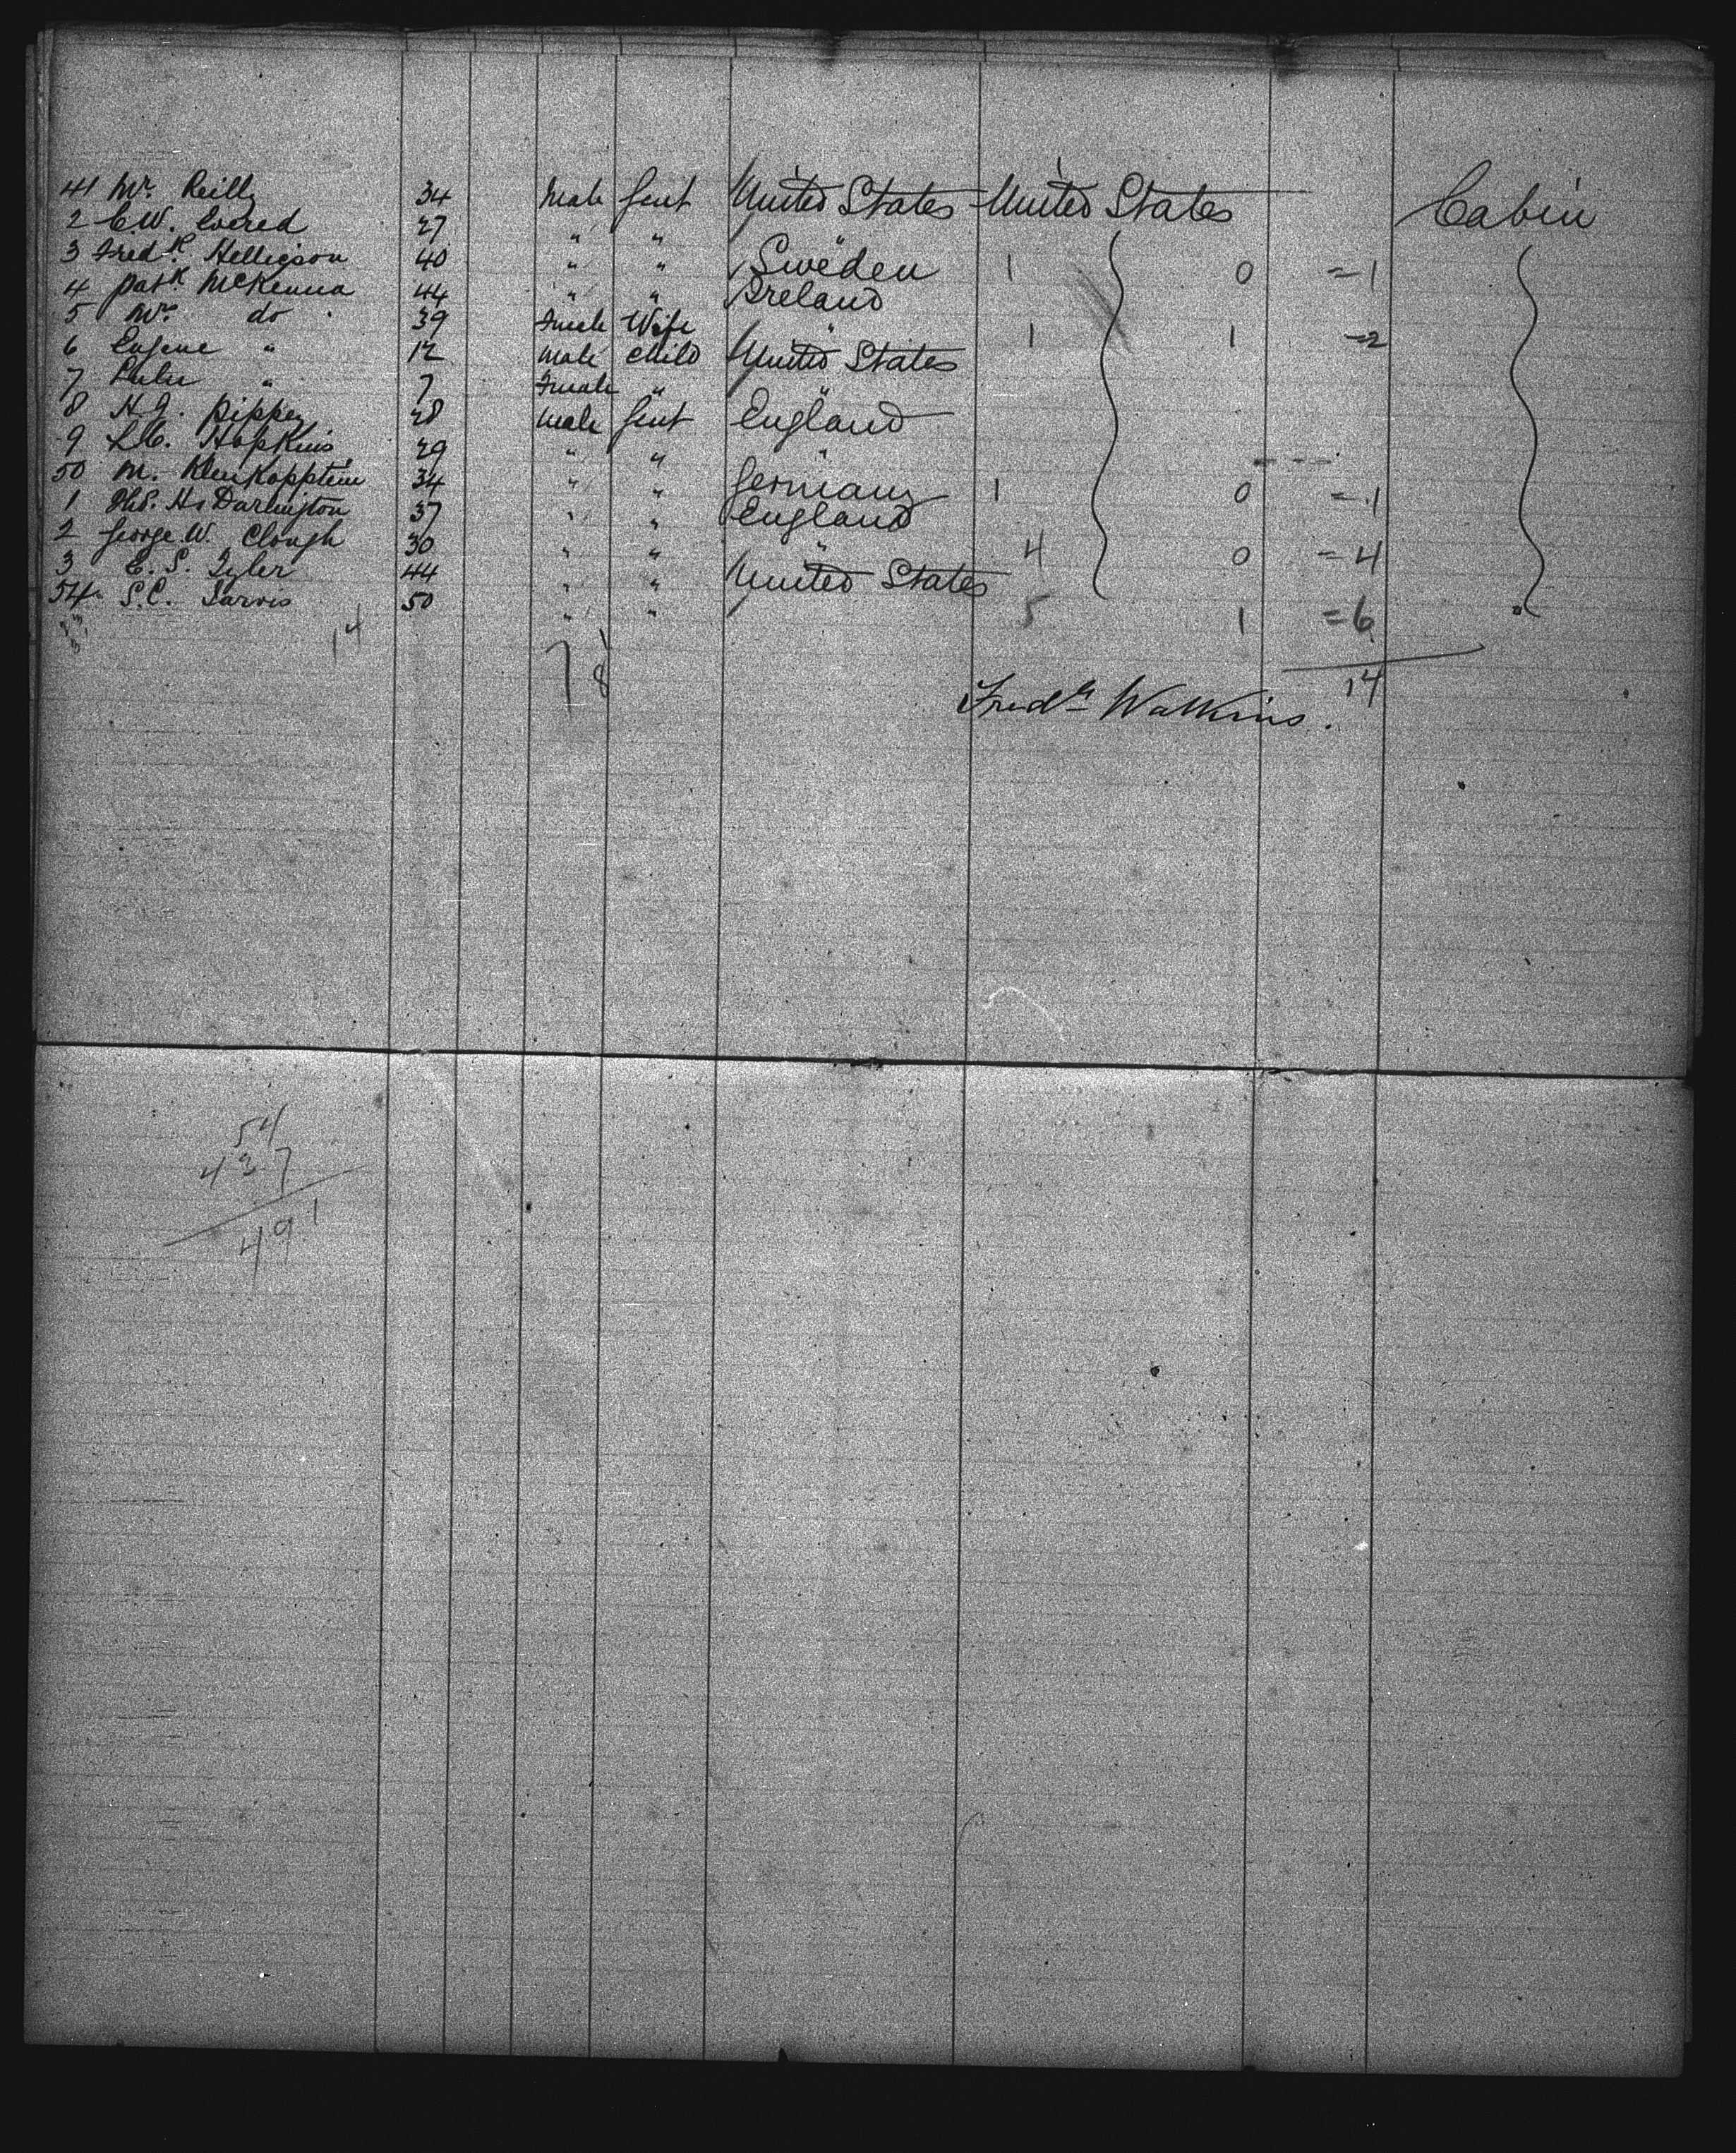 41 Mr. Reilly 34 Male Gent United States United States Cabin
2 C.W. Evered 27 " " "
3 Fredk. Helligson 40 " " Sweden 1 0 =1
4 Patk McKenna 44 " " Ireland
5 Mrs. do 39 Female Wife " 1 1 =2
6 Eugene " 12 Male Child United States
7 Lulu " 7 Female " "
8 H.J. Pippey 28 Male Gent England
9 L.C. Hopkins 29 " " "
50 M. 34 " " Germany 1 0 =1
1 Thos. H. Darlington 37 " " England
2 George W. Clough 30 " " " 4 0 =4
3 E. S. Tyler 44 " " United States
54 S.C. Jarvis 50 " " 5 1 =6
14
7 8
14
Fredk Watkins.
54
437
491